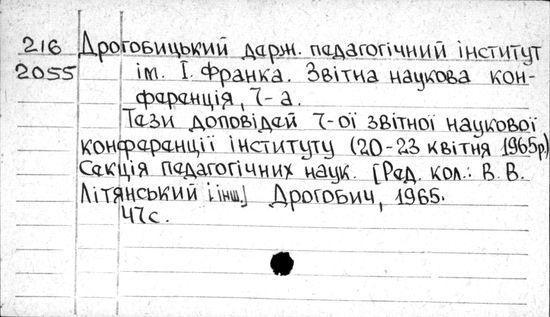 216 Дрогобицький держ. педагогічний інститут
2055 ім. І. Франка. Звітна наукова кон-
ференція, 7-а.
Тези доповідей 7-ої звітної наукової
конференції інституту (20-23 квітня 1965р)
Секція педагогічних наук. [Ред. кол.: В. В.
Літянський і інш.] Дрогобич, 1965.
47с.